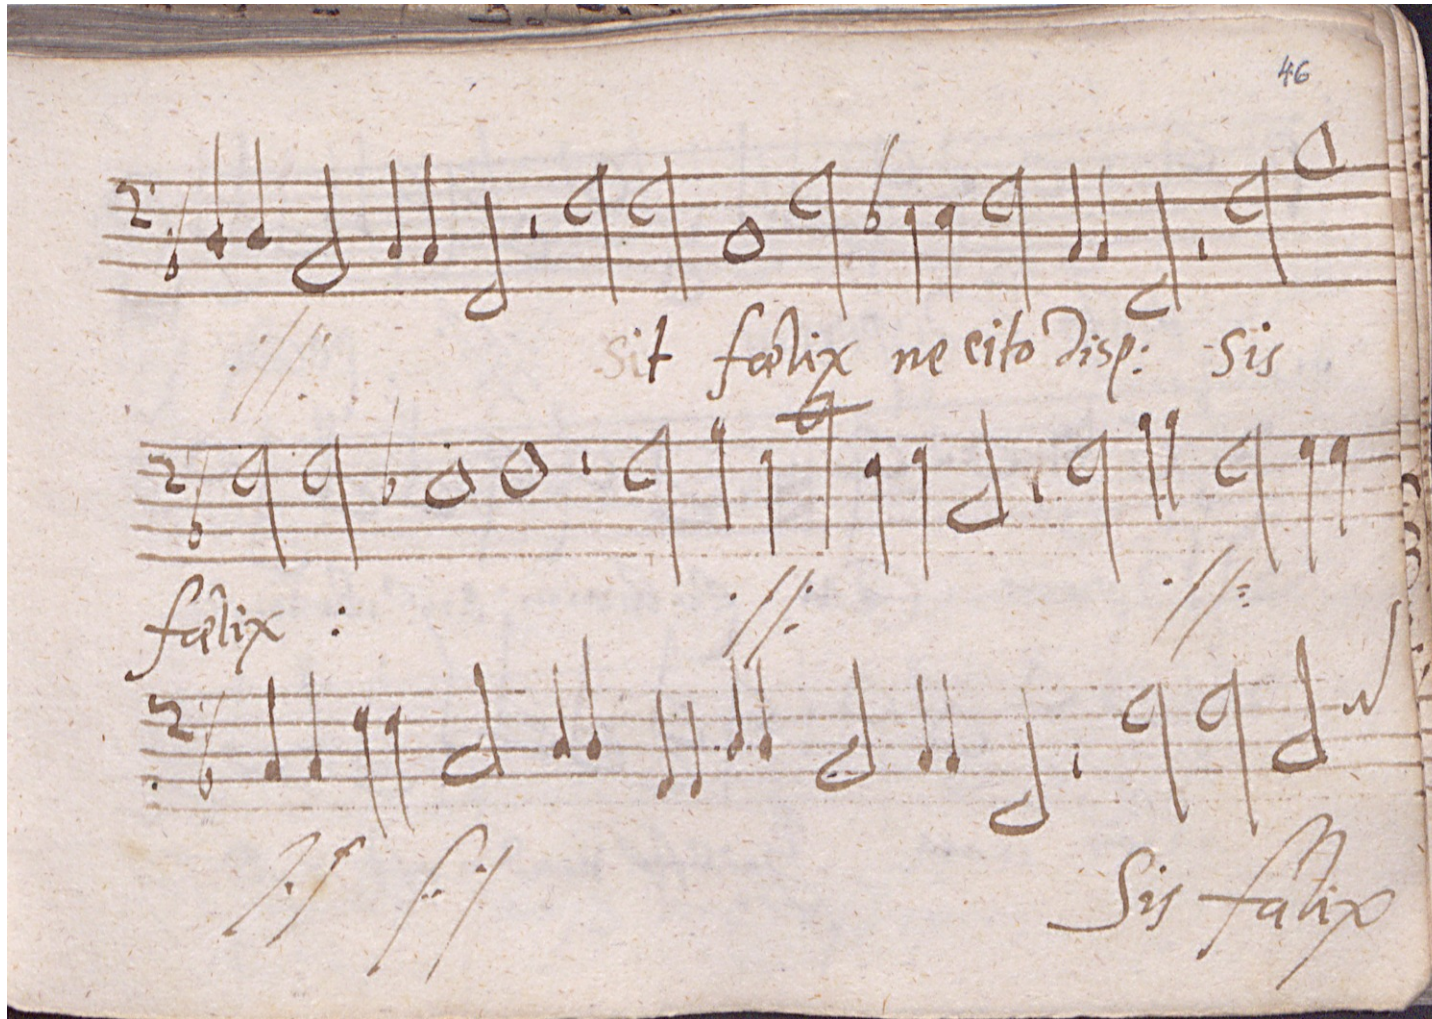 46
Sit fœlix ne cito disp: Sis
fœlix :
Sis fœlix